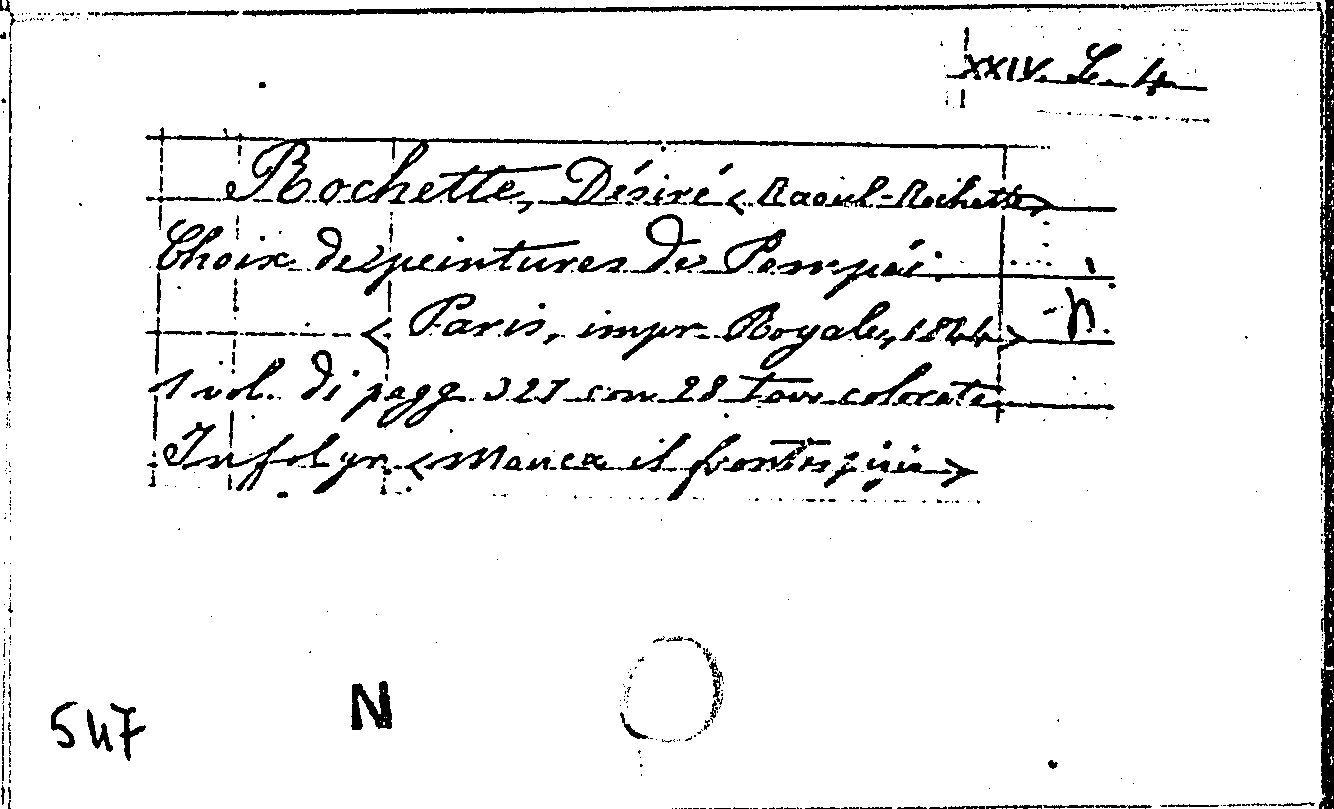 XXIV. L. 4
Rochette, Désiré < Raoul-Rochette >
Choix de peintures de Pompéi.
< Paris, impr. Royale, 1844 >
n.
1 vol. di pagg. 327 con 28 tav. colorate.
In fol. gr. < Manca il frontispizio >
547 N